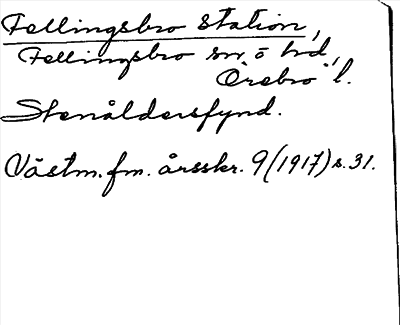 Fellingsbro station,
Fellingsbro sn o hd,
Örebro l.
Stenåldersfynd.
Västm. fm. årsskr. 9 (1917) s. 31.